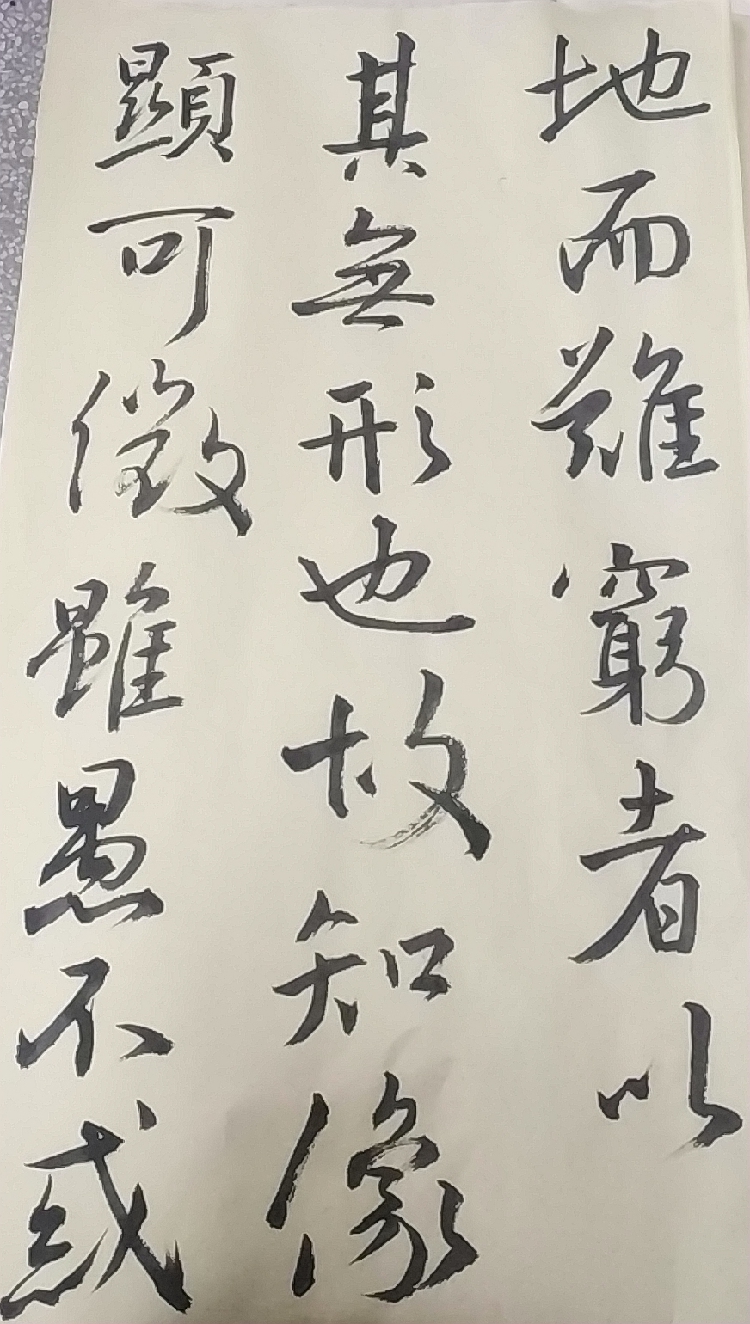 地而難窮者以
其無形也故知像
顯可徵雖愚不惑